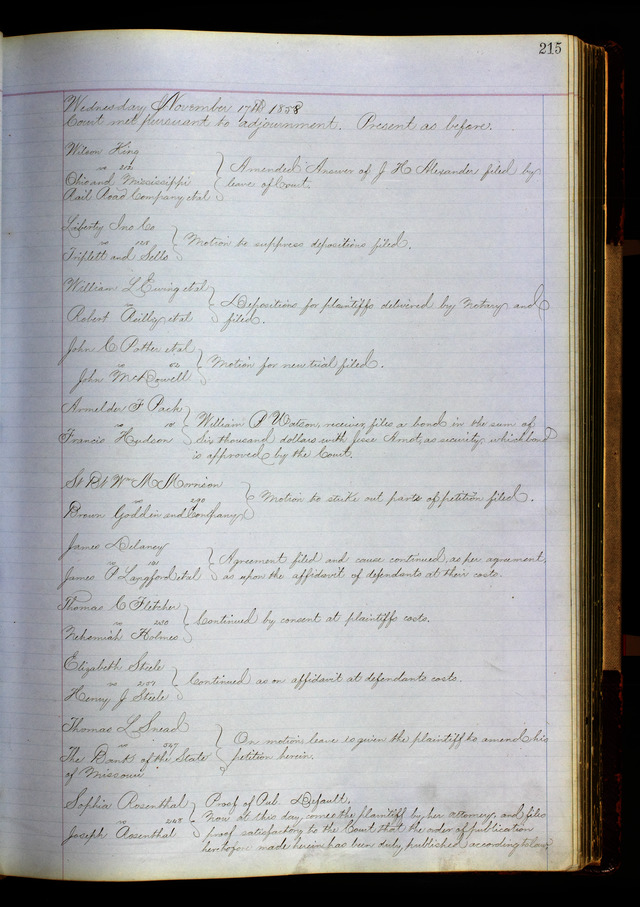 215
Wednesday November 17th 1858
Court met pursuant to adjournment. Present as before.
Wilson King
vs 212
Ohio and Mississippi
Rail Road Company etal
Amended Answer of J H Alexander filed by
leave of Court.
Liberty Ins Co
vs
Triplett and Sells
Motion to suppress depositions filed.
William L Ewing etal
vs
Robert Reilly etal
Depositions for plaintiffs delivered by Notary and
filed.
John C Potter etal
vs 52
John McDowell
Motion for new trial filed.
Armelder F Pack
vs
Francis Hudson
William P Watson, receiver, files a bond in the sum of
Six thousand dollars with Jesse Arnot, as security, which bond
is approved by the Court.
St Bt Wm M Morrison
vs 290
Brown Goddin and Company
Motion to strike out parts of petition filed.
James Delaney
vs 121
James P Langford etal
Agreement filed and cause continued, as per agreement,
as upon the affidavit of defendants at their costs.
Thomas C Fletcher
vs 230
Nehemiah Holmes
Continued by consent at plaintiffs costs.
Elizabeth Steele
vs
Henry J Steele
Continued as on affidavit at defendants costs.
Thomas L Snead
vs 547
The Bank of the State
of Missouri
On motion, leave is given the plaintiff to amend his
petition herein.
Sophia Rosenthal
vs 248
Joseph Rosenthal
Proof of Pub. Default.
Now at this day, comes the plaintiff by her attorney, and files
proof satisfactory to the Court that the order of publication
heretofore made herein has been duly published according to law